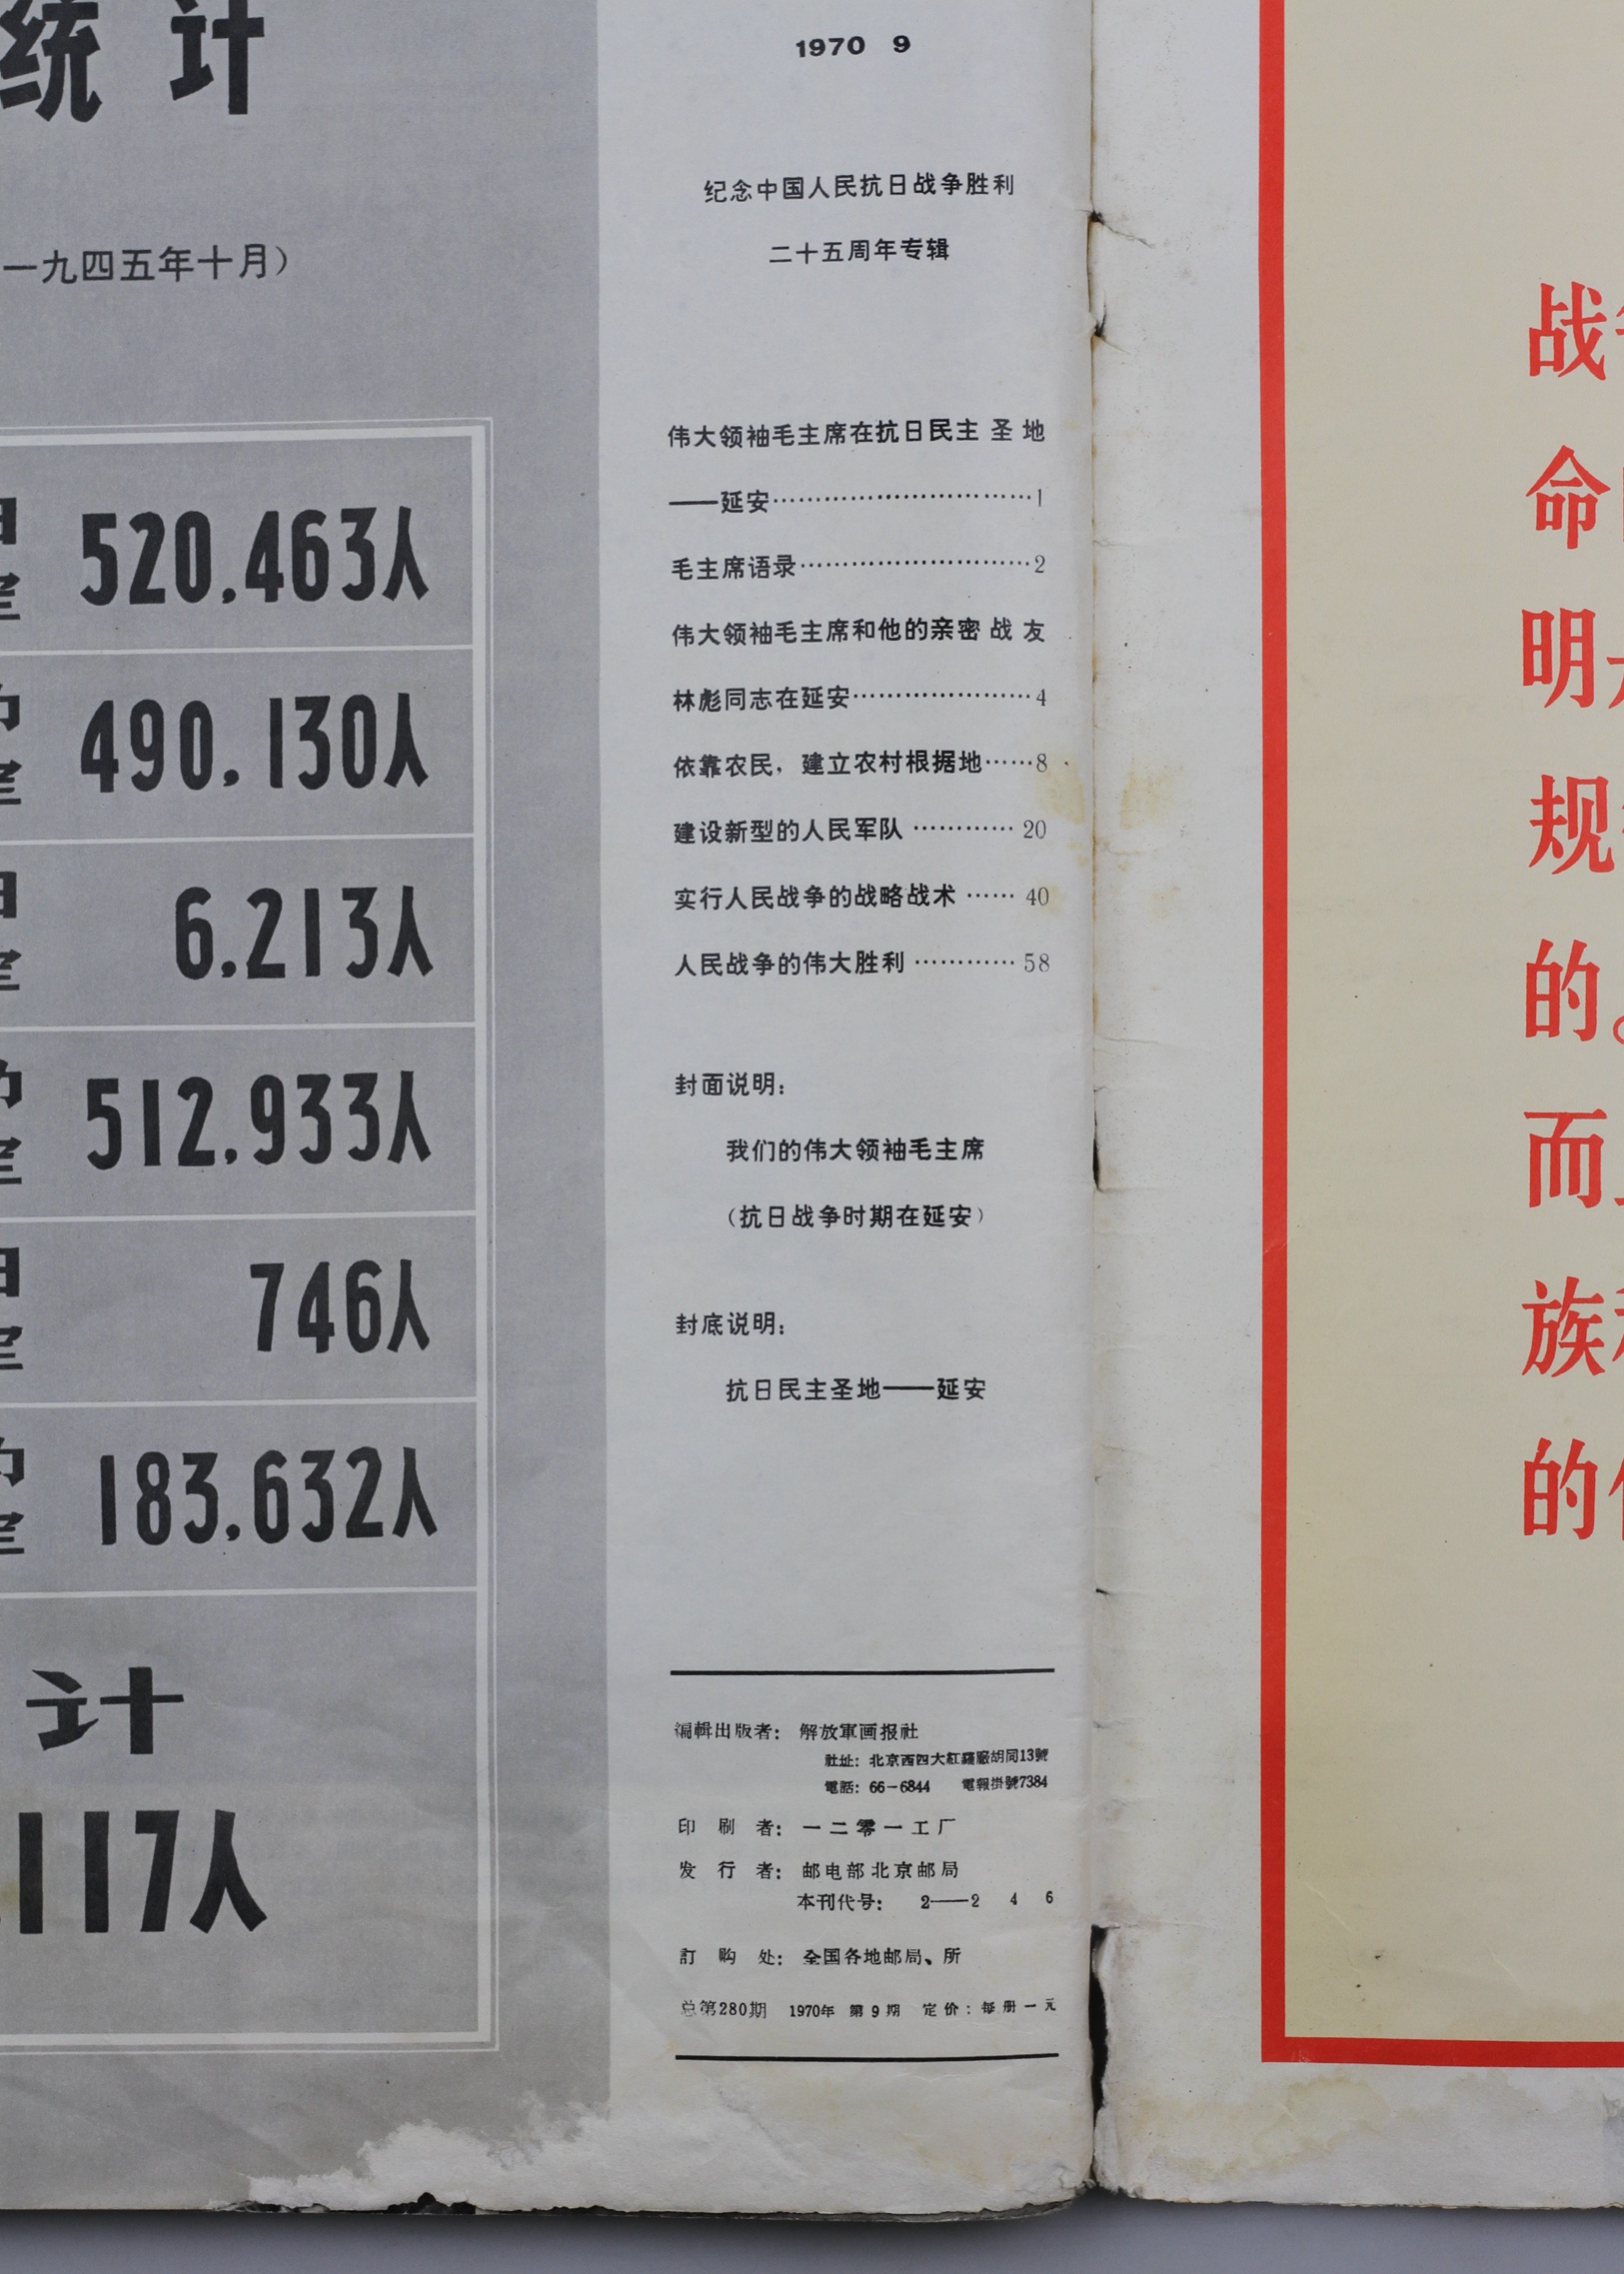 统计
一九四五年十月）
520,463人
490,130人
6,213人
512,933人
746人
183,632人
计
117人
1970 9
纪念中国人民抗日战争胜利
二十五周年专辑
伟大领袖毛主席在抗日民主圣地
——延安……………………………1
毛主席语录…………………………2
伟大领袖毛主席和他的亲密战友
林彪同志在延安…………………4
依靠农民，建立农村根据地……8
建设新型的人民军队…………20
实行人民战争的战略战术……40
人民战争的伟大胜利…………58
封面说明：
我们的伟大领袖毛主席
（抗日战争时期在延安）
封底说明：
抗日民主圣地——延安
編輯出版者：解放軍画报社
社址：北京西四大紅羅廠胡同13號
電話：66-6844 電報掛號7384
印刷者：一二零一工厂
发行者：邮电部北京邮局
本刊代号：2——246
訂购处：全国各地邮局、所
总第280期 1970年 第9期 定价：每册一元
战
命
明
规
的。
而
族
的